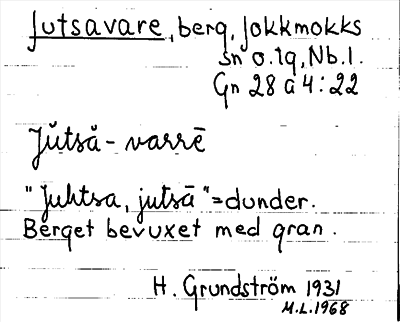 Jutsavare, berg, Jokkmokks
sn o. tg, Nb.l.
Gn 28 a 4:22
Jŭtså-varrē
"Juhtsa, jutsā"=dunder.
Berget bevuxet med gran.
H. Grundström 1931
M.L.1968